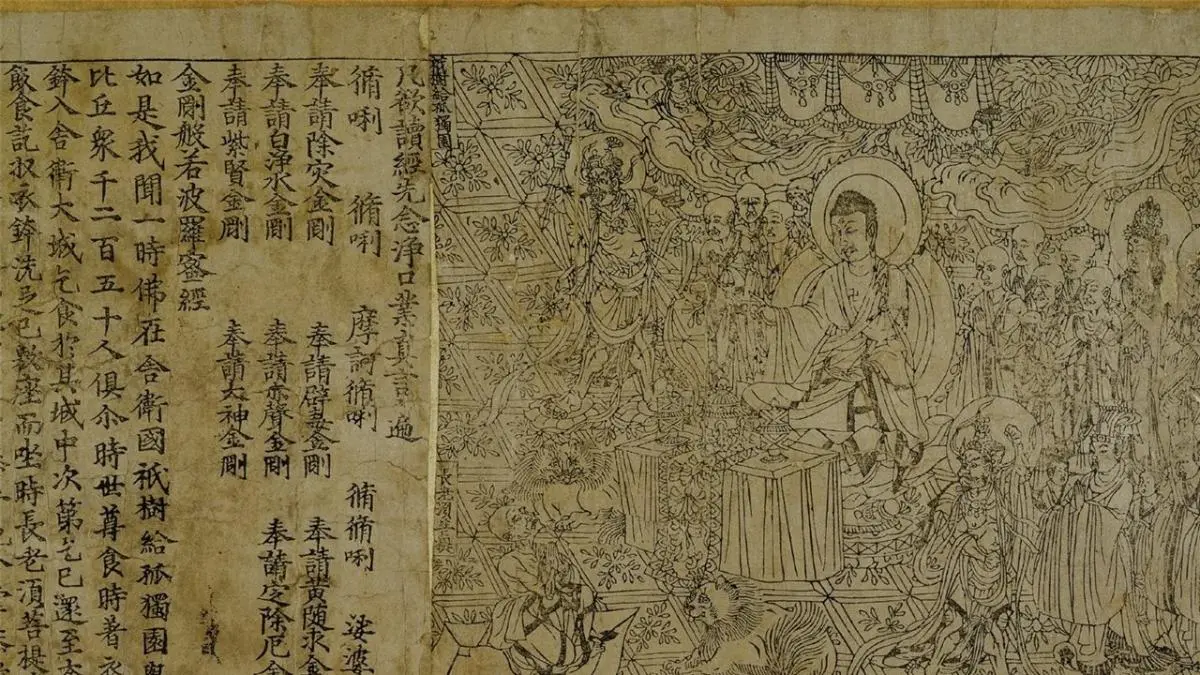 祇樹給孤獨園
長老須菩提
凡欲讀經先念淨口業真言一遍
脩唎 脩唎 摩訶脩唎 脩脩唎 娑婆
奉請除灾金剛 奉請辟毒金剛 奉請黃隨求金
奉請白淨水金剛 奉請赤聲金剛 奉請定除厄金
奉請紫賢金剛 奉請大神金剛
金剛般若波羅蜜經
如是我聞一時佛在舍衛國祇樹給孤獨園與
比丘衆千二百五十人俱尒時世尊食時著衣
鉢入舍衛大城乞食於其城中次第乞已還至本
飯食訖收衣鉢洗足已敷座而坐時長老須菩提